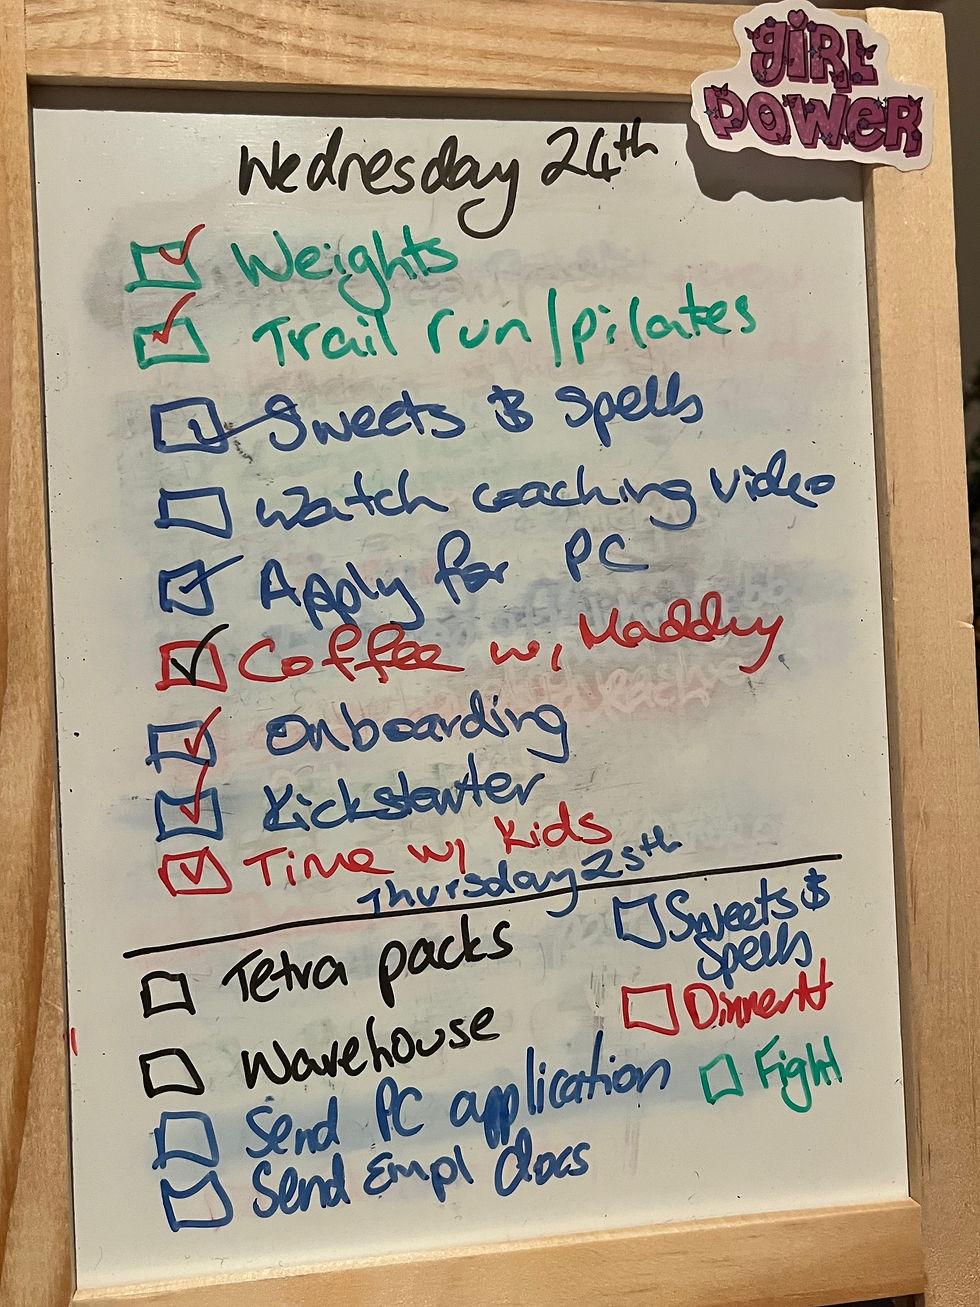 GiRL
POWeR
Wednesday 24th
Weights
Trail run/pilates
Sweets & Spells
Watch coaching video
Apply for PC
Coffee w, Maddy
Onboarding
Kickstarter
Time w/ Kids
Thursday 25th
Tetra packs
Warehouse
Send PC application
Send Empl docs
Sweets &
Spells
Dinner
Fight